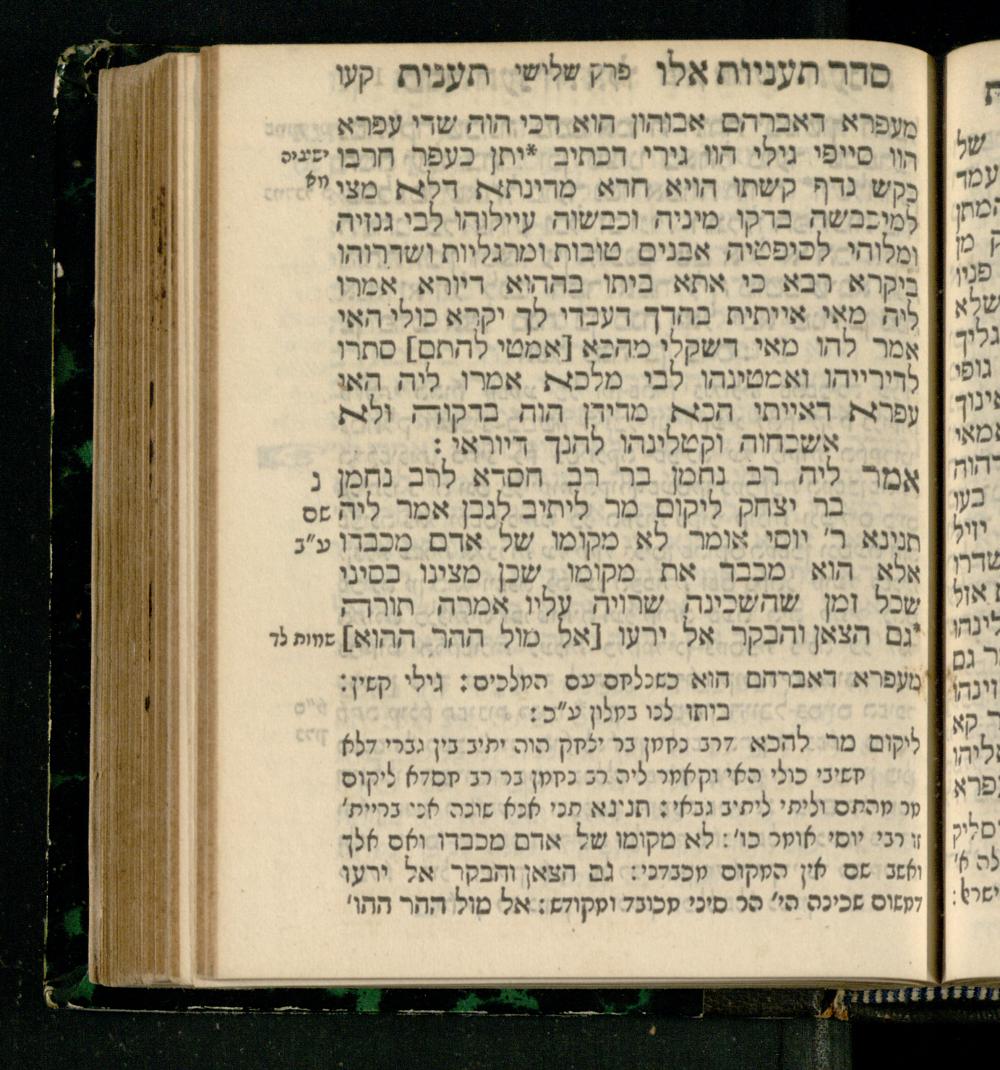 סדר תעניות אלו פרק שלישי תענית קעו
מעפרא דאברהם אבוהון הוא דכי הוה שדי עפרא
הוו סייפי גילי הוו גירי דכתיב *יתן כעפר חרבו ישעיה
כקש נדף קשתו הויא חרא מדינתא דלא מצי מא
למיכבשה בדקו מיניה וכבשוה עיילוהו לבי גנזיה
ומלוהי לסיפטיה אבנים טובות ומרגליות ושדרוהו
ביקרא רבא כי אתא ביתו בההוא דיורא אמרו
ליה מאי אייתית בהדך דעבדי לך יקרא כולי האי
אמר להו מאי דשקלי מהכא [אמטי להתם] סתרו
לדירייהו ואמטינהו לבי מלכא אמרו ליה האו
עפרא דאייתי הכא מדידן הוה בדקוה ולא
אשכחוה וקטלינהו להנך דיוראי :
אמר ליה רב נחמן בר רב חסדא לרב נחמן נ
בר יצחק ליקום מר ליתיב לגבן אמר ליה שם
תנינא ר' יוסי אומר לא מקומו של אדם מכבדו ע"ב
אלא הוא מכבד את מקומו שכן מצינו בסיני
שכל זמן שהשכינה שרויה עליו אמרה תורה
*גם הצאן והבקר אל ירעו [אל מול ההר ההוא] שמות לד
מעפרא דאברהם הוא כשנלחם עם המלכים : גילי קשין :
ביתו לנו במלון ע"כ :
ליקום מר להכא דרב נחמן בר יצחק הוה יתיב בין גברי דלא
חשיבי כולי האי וקאמר ליה רב נחמן בר רב חסדא ליקום
מר מהתם וליתי ליתיב גבאי : תנינא תני אנא שונה אני ברייתא
זו רבי יוסי אומר כו' : לא מקומו של אדם מכבדו ואם אלך
ואשב שם אין המקום מכבדני : גם הצאן והבקר אל ירעו
דמשום שכינה הי' הר סיני מכובד ומקודש : אל מול ההר ההו'
של
עמד
המתן
מן
פניו
שלא
גליך
גופי
אמאי
דהוה
בעו
יזיל
שדרו
אזל
גם
קא
אליהו